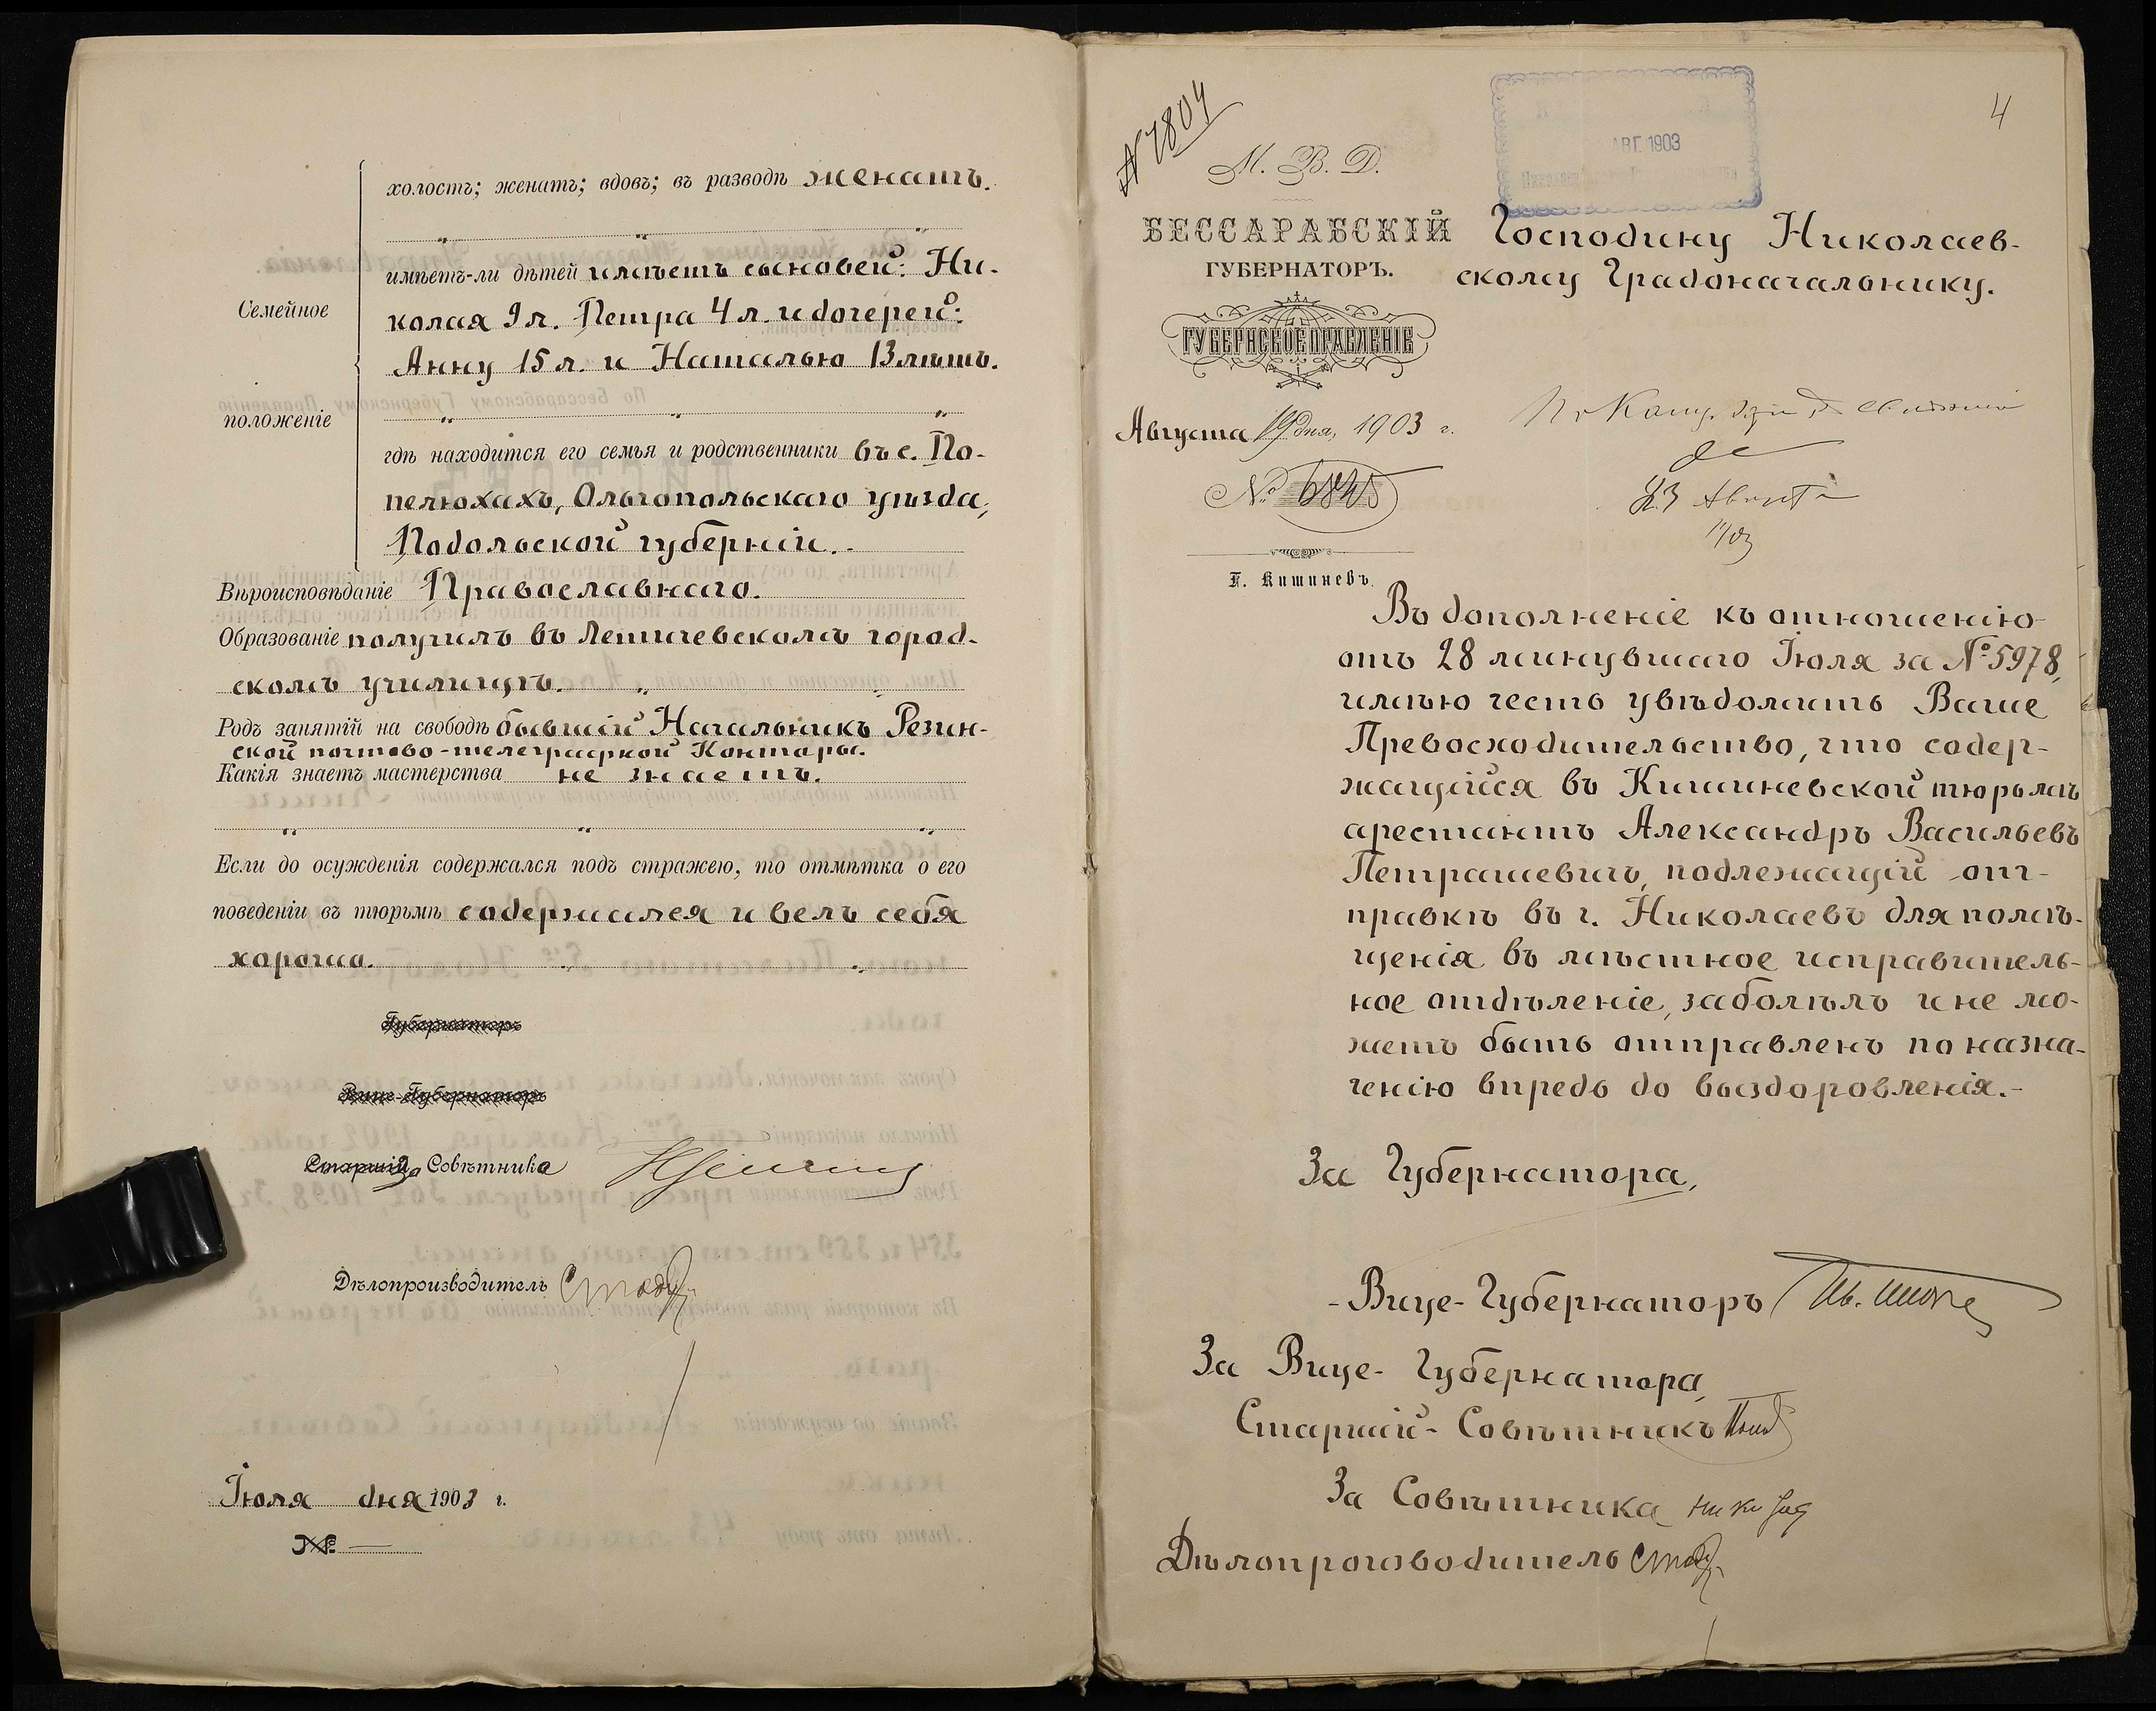 холостъ; женатъ; вдовъ; въ разводѣ женатъ.
имѣетъ-ли дѣтей имѣетъ сыновей: Ни-
колая 9 л. Петра 4 л. и дочерей:
Анну 15 л. и Наталью 13 лѣтъ.
Семейное
положеніе
гдѣ находится его семья и родственники въ с. По-
пелюхахъ, Ольгопольскаго уѣзда,
Подольской губерніи.
Вѣроисповѣданіе Православнаго.
Образованіе получилъ въ Летичевскомъ город-
скомъ училищѣ.
Родъ занятій на свободѣ бывшій Начальникъ Резин-
ской почтово-телеграфной Конторы.
Какія знаетъ мастерства не знаетъ.
Если до осужденія содержался подъ стражею, то отмѣтка о его
поведеніи въ тюрьмѣ содержался и велъ себя
хорошо.
Губернаторъ
Вице-Губернаторъ
Старшій За Совѣтника
Дѣлопроизводитель
Іюля дня 1903 г.
№
4
АВГ. 1903
М. В. Д.
БЕССАРАБСКІЙ
ГУБЕРНАТОРЪ.
ГУБЕРНСКОЕ ПРАВЛЕНІЕ
Августа 19 дня, 1903 г.
№
Г. Кишиневъ.
Господину Николаев-
скому Градоначальнику.
23 Августа
Въ дополненіе къ отношенію
отъ 28 минувшаго Іюля за № 5978,
имѣю честь увѣдомить Ваше
Превосходительство, что содер-
жащійся въ Кишиневской тюрьмѣ
арестантъ Александръ Васильевъ
Петрашевичъ, подлежащій от-
правкѣ въ г. Николаевъ для помѣ-
щенія въ мѣстное исправитель-
ное отдѣленіе, заболѣлъ и не мо-
жетъ быть отправленъ по назна-
ченію впредь до выздоровленія.-
За Губернатора,
-Вице-Губернаторъ
За Вице-Губернатора,
Старшій-Совѣтникъ
За Совѣтника
Дѣлопроизводитель